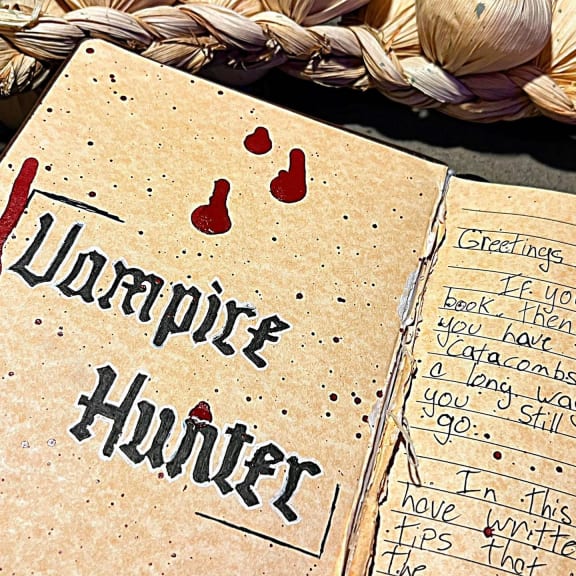 Vampire
Hunter
Greetings
If you
book, then
you have
catacombs
a long way
you still
go.
In this
have written
tips that
the